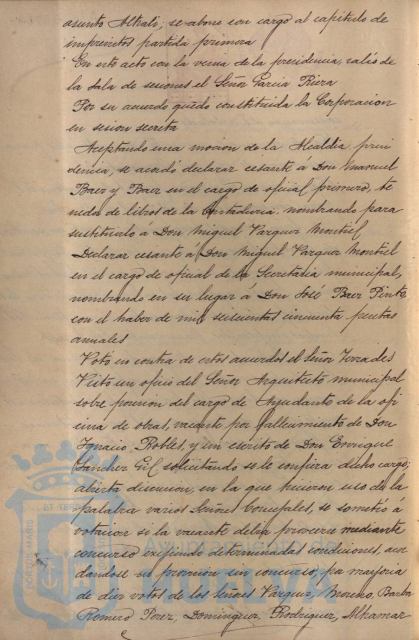 asunto Alhali; se abone con cargo al capitulo de
imprevistos partida primera
En este acto con la venia de la presidencia, salió de
la Sala de sesiones el Señor Garcia Riera
Por su acuerdo quedó constituida la Corporacion
en sesion secreta
Aceptando una mocion de la Alcaldía presi
dencia, se acordó declarar cesante á Don Manuel
Baez y Baez en el cargo de oficial primero, te
nedor de libros de la Contaduria, nombrando para
sustituirlo á Don Miguel Vazquez Montiel
Declarar cesante á Don Miguel Vazquez Montiel
en el cargo de oficial de la Secretaria municipal,
nombrando en su lugar á Don José Baez Pinto
con el haber de mil seiscientas cincuenta, pesetas
anuales
Votó en contra de estos acuerdos el Señor Terrades
Visto un oficio del Señor Arquitecto municipal
sobre provision del cargo de Ayudante de la ofi
cina de obras, vacante por fallecimiento de Don
Ignacio Robles, y un escrito de Don Enrique
Sanchez Gil solicitando se le confiera dicho cargo;
abierta discucion, en la que hicieron uso de la
palabra varios Señores Concejales, se sometió á
votacion si la vacante debia proveerse mediante
concurso exijiendo determinadas condiciones, acor
dandose su provision sin concurso, por mayoria
de diez votos de los Señores Vazquez, Moreno, Barba
Romero Perez, Dominguez, Rodriguez, Alhamar